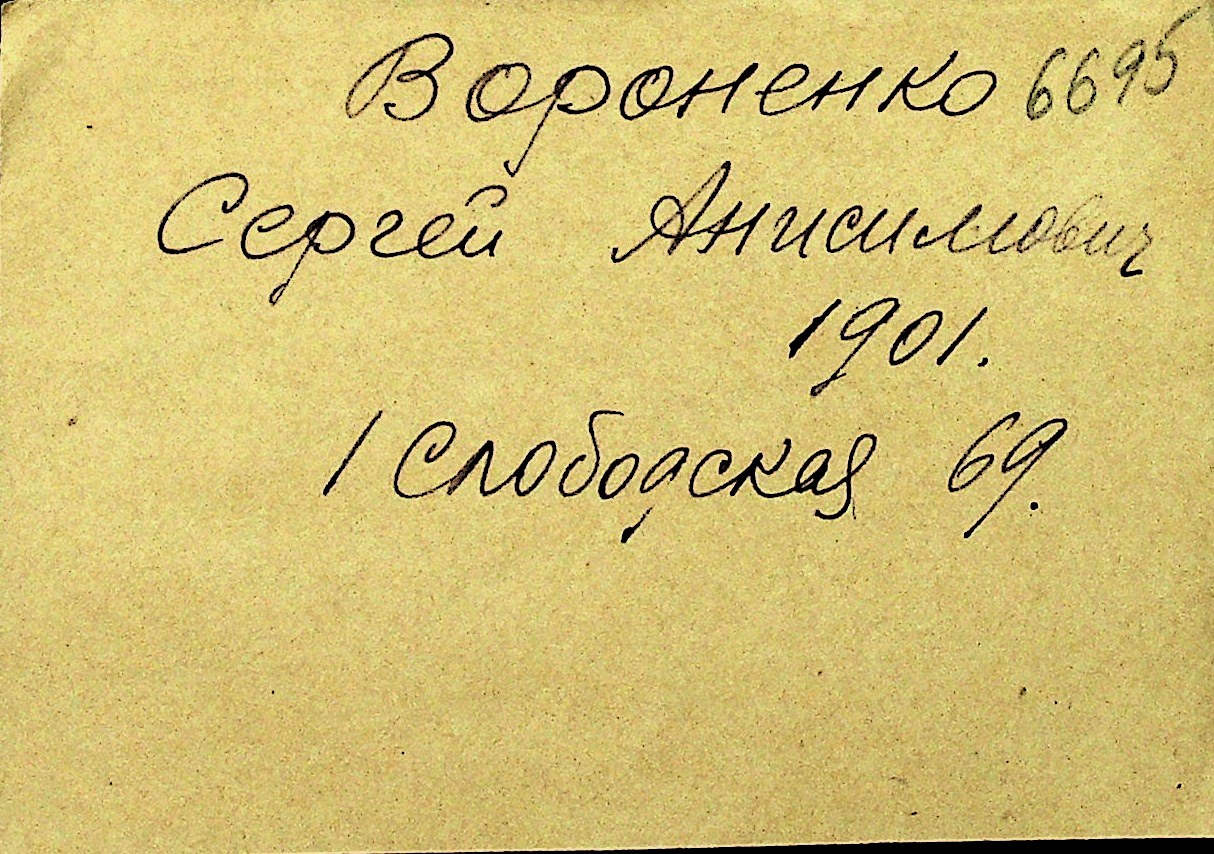 Вороненко 6695
Сергей Анисимович
1901.
1 Слободская 69.